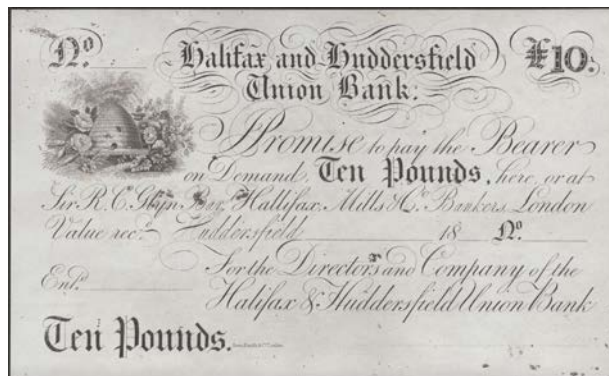 No. Halifax and Huddersfield £10.
Union Bank.
Promise to pay the Bearer
on Demand Ten Pounds, here, or at
Sir R. C. Glyn Bar.t Hallifax, Mills & Co. Bankers, London
Value rec.d Huddersfield 18 No.
For the Directors and Company of the
Ent.d
Halifax & Huddersfield Union Bank
Ten Pounds.